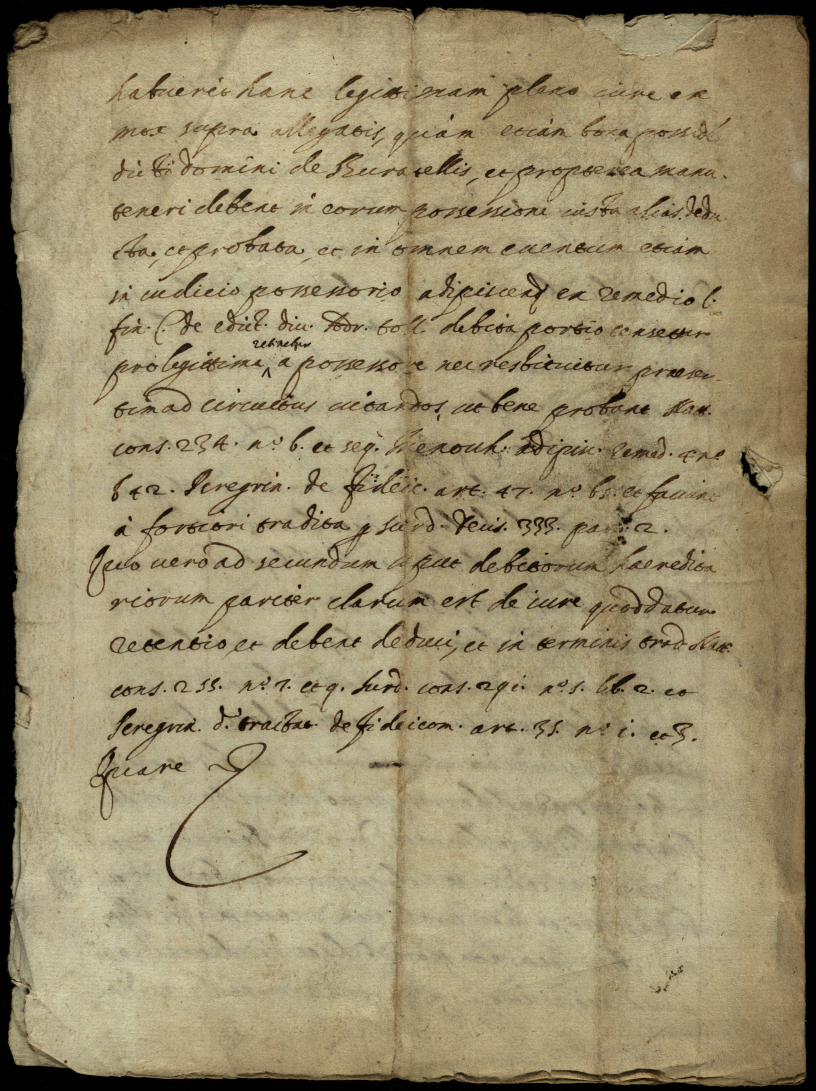 habuerit hanc legittimam pleno iure ex
mox supra allegatis, quàm etiàm bona possid.
dicti domini de Buratellis, et propterea manu-
teneri debent in eorum possessione iuxta alias dedu
cta, et probata, et in omnem euentum etiàm
in iudicio possessorio adipiscend ex remedio l.
fin. C. de edict. diu. Adr. toll. debita portio censetur
retinetur
prolegittima ^ a possessore nec restituitur praeser
tim ad circuitus uitandos, ut bene probant
cons. 234. n.º 6. et seq. Menoch. adipis. remed. 4 nº
642. Peregrin. de fideic. art. 47. nº 6 et faciunt
à fortiori tradita p surd. decis. 333. par. 2.
Quo uero ad secundum caput debitorum haeredita
riorum paritèr clarum est de iure quod datur
retentio, et debent deduci, et in terminis trad
cons. 255. nº 7. et 9. Surd. cons. 291. nº 5. lib. 2. et
Peregrin. d.º tractat. de fideicom. art. 35. nº 1. et 3.
Quare